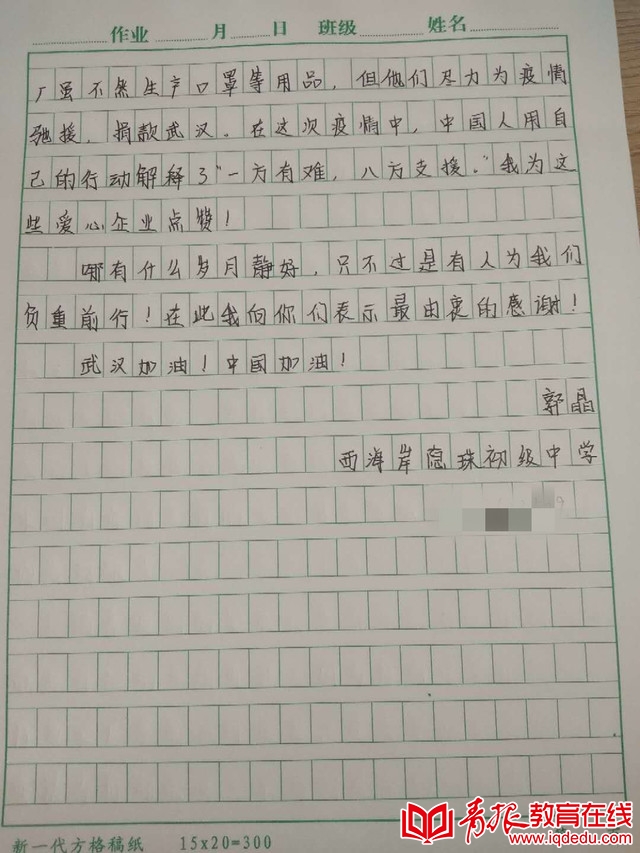 作业 月 日 班级 姓名
厂虽不然生产口罩等用品，但他们尽力为疫情
驰援，捐款武汉。在这次疫情中，中国人用自
己的行动解释了“一方有难，八方支援。”我为这
些爱心企业点赞！
哪有什么岁月静好，只不过是有人为我们
负重前行！在此我向你们表示最由衷的感谢！
武汉加油！中国加油！
郭晶
西海岸隐珠初级中学
新一代方格稿纸 15x20=300
青报教育在线
www.iqdedu.com